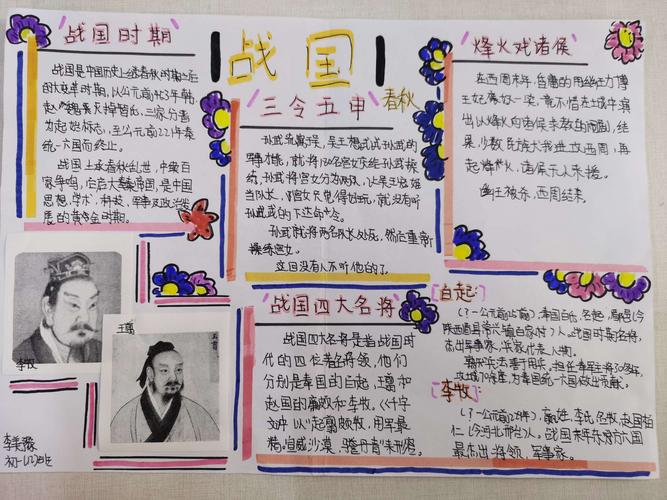 战国时期
战国是中国历史上继春秋时期之后
的大变革时期,以公元前403年韩
赵魏
三家分晋
为起始标志,至公元前221年秦
统一六国而终止。
战国上承春秋乱世,中续百
家争鸣,后启大秦帝国,是中国
思想、学术、科技、军事及政治发
展的黄金时期。
战国
三令五申
春秋
孙武
吴王想试试孙武的
宫女交给孙武操
练,孙武将宫女分为两队,让吴王宠姬
当队长,
宫女只觉得好玩,就没有听
孙武的
孙武就将两名队长处死,然后重新
操练宫女。
这回没有人不听他的了。
烽火戏诸侯
在西周末年,昏庸的
周幽王为博
王妃褒姒一笑,竟不惜在城中演
出以烽火向诸侯求救的闹剧,结
果,少数民族犬戎进攻西周,再
起烽火,诸侯无人来援。
幽王被杀,西周结束。
李牧
王翦
王翦
李美豫
初一(2)班
战国四大名将
战国四大名将是指战国时
代的四位著名将领,他们
分别是秦国的白起、王翦和
赵国的廉颇和李牧。《千字
文》中以"起翦颇牧,用军最
精,宣威沙漠,
[白起]
(?一公元前257年),秦国白氏,名起,郿邑(今
陕西眉县常兴镇白家村)人。战国时期名将,
杰出军事家、兵家代表人物。
担任秦军主将30多年,
攻城70余座,为秦国统一六国做出贡献。
[李牧]
(?一公元前229年),嬴姓,李氏,名牧,赵国柏
仁(今河北邢台)人。战国末年东方六国
最杰出将领,军事家。